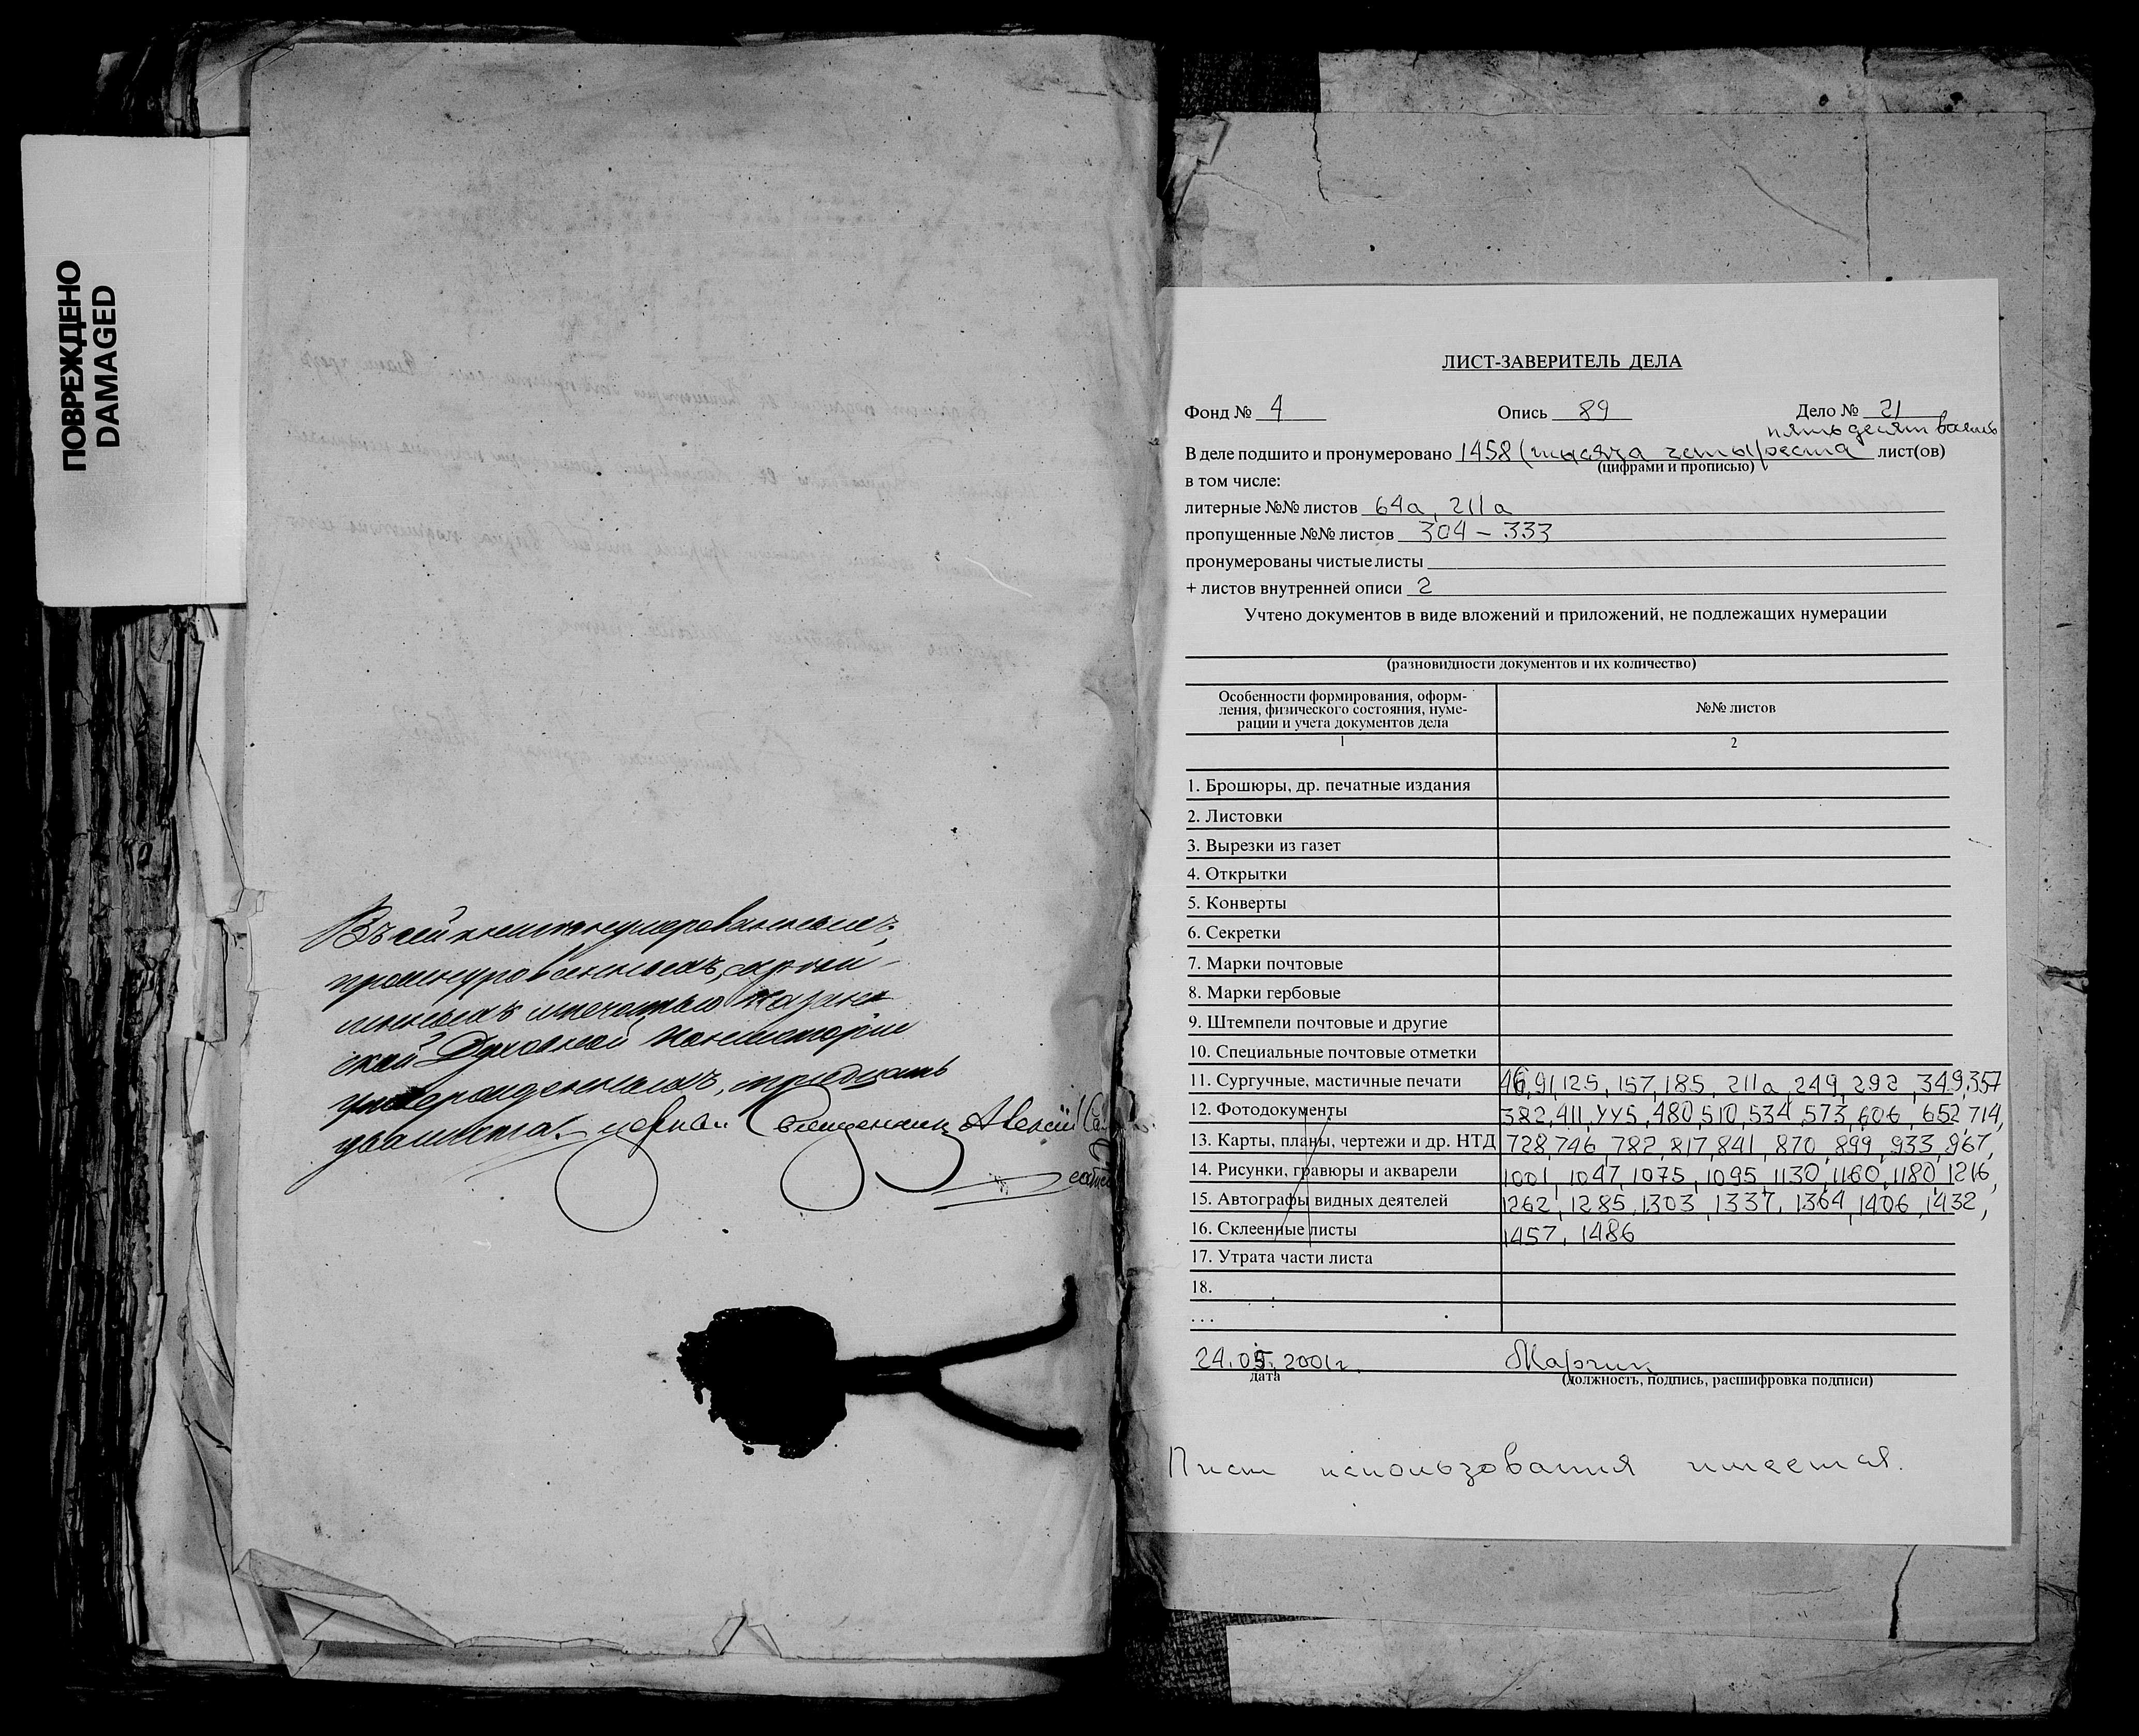 ПОВРЕЖДЕНО
DAMAGED
Въ сей книгѣ нумерованныхъ,
прошнурованныхъ, скрѣп-
ленныхъ и печатью
ской Духовной Консисторіи
утвержденныхъ, тридцать
два листа. Священникъ Алексѣй
ЛИСТ-ЗАВЕРИТЕЛЬ ДЕЛА
Фонд № 4 Опись 89 Дело № 21
пятьдесят восемь
В деле подшито и пронумеровано 1458 (тысяча четыреста лист(ов)
(цифрами и прописью)
в том числе:
литерные №№ листов 64а, 211а
пропущенные №№ листов 304 – 333
пронумерованы чистые листы
+ листов внутренней описи 2
Учтено документов в виде вложений и приложений, не подлежащих нумерации
(разновидности документов и их количество)
Особенности формирования, оформ-
ления, физического состояния, нуме-
рации и учета документов дела
№№ листов
1 2
1. Брошюры, др. печатные издания
2. Листовки
3. Вырезки из газет
4. Открытки
5. Конверты
6. Секретки
7. Марки почтовые
8. Марки гербовые
9. Штемпели почтовые и другие
10. Специальные почтовые отметки
11. Сургучные, мастичные печати 46, 91, 125, 157, 185, 211а, 249, 292, 349, 357
12. Фотодокументы 382, 411, 445, 480, 510, 534, 573, 606, 652, 714,
13. Карты, планы, чертежи и др. НТД 728, 746, 782, 817, 841, 870, 899, 933, 967,
14. Рисунки, гравюры и акварели 1001, 1047, 1075, 1095, 1130, 1160, 1180, 1216,
15. Автографы видных деятелей 1262, 1285, 1303, 1337, 1364, 1406, 1432,
16. Склеенные листы 1457, 1486
17. Утрата части листа
18.
...
24.05.2001г.
дата (должность, подпись, расшифровка подписи)
Лист использования имеется.